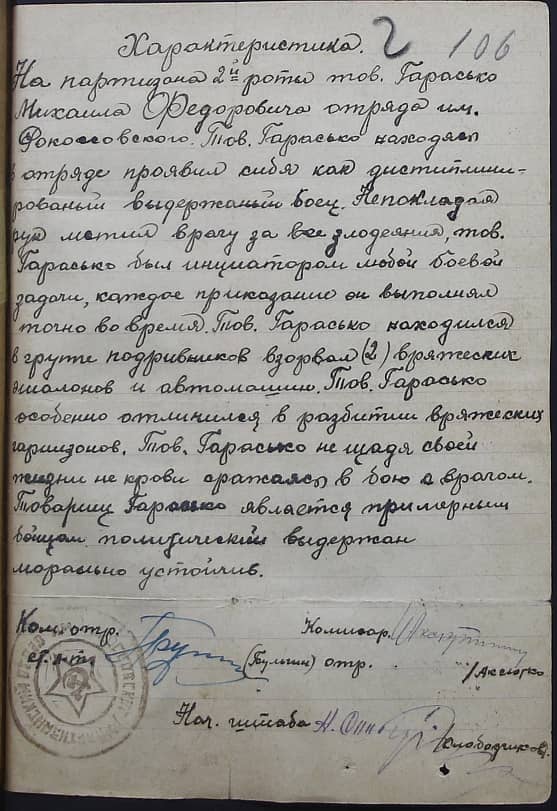 Характеристика. 2 106
На партизана 2й роты тов. Гарасько
Михаила Федоровича отряда им.
Рокоссовского. Тов. Гарасько находясь
в отряде проявил сибя как дистиплини-
рованый выдержаный боец. Непокладая
рук мстил врагу за все злодеяния, тов.
Гарасько был инициатором любой боевой
задачи, каждое приказание он выполнял
точно во время. Тов. Гарасько находился
в групе подривников взорвал (2) вряжеских
эшалонов и автомашин. Тов. Гарасько
особенно отличился в разбитии вряжеских
гарнизонов. Тов. Гарасько не щадя своей
жизни не крови сражаясь в бою с врагом.
Товарищ Гарасько является примерным
бойцом политический выдержан
морально устойчив.
Ком. отр. Комисар.
ст. л-т (Булыгин) отр. /Аксютко
Нач. штаба Слободчиков)